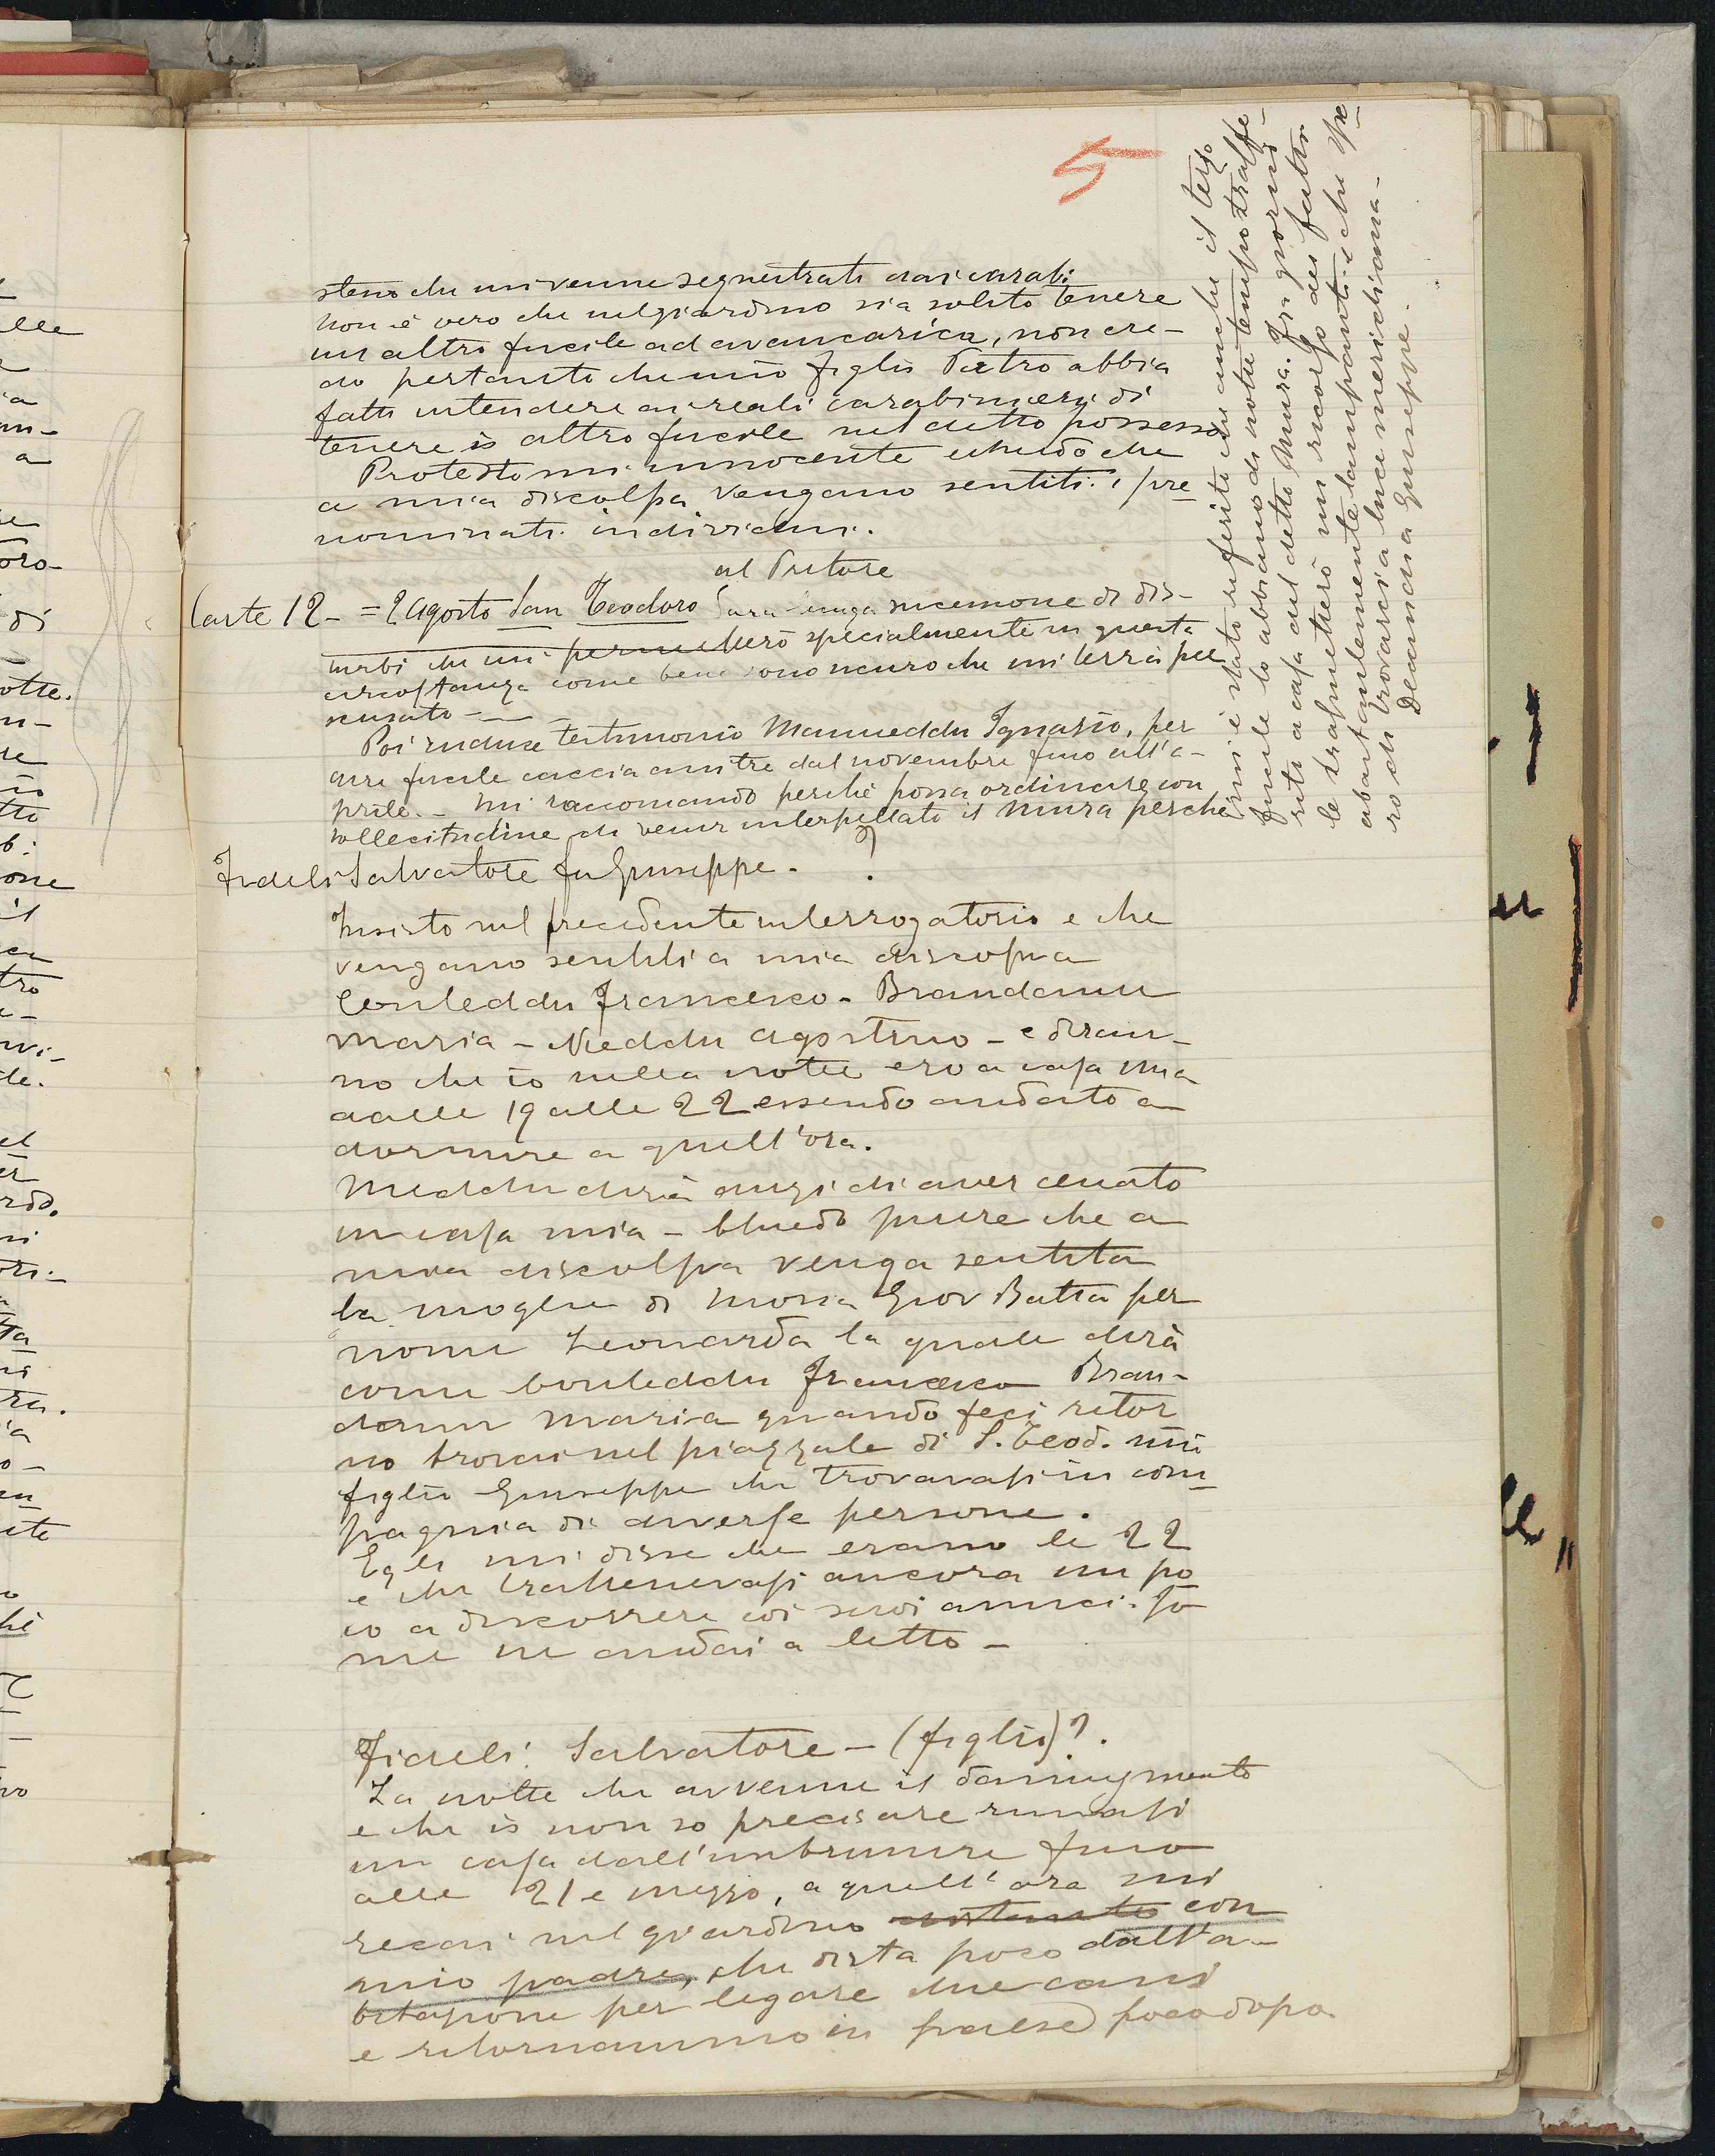 5
stesso che mi venne sequestrato dai carabi
non è vero che nel giardino sia solito tenere
un altro fucile ad avancarica, non cre-
do pertanto che mio figlio Pietro abbia
fatto intendere ai reali carabinieri di
tenere io altro fucile nel detto possesso
Protestomi innocente e chiedo che
a mia discolpa vengano sentiti i pre
nominati individui.
al Pretore
Carte 12 - = 2 Agosto San Teodoro Sarà lunga successione di dis-
turbi che mi permetterò specialmente in questa
circostanza come bene sono sicuro che mi terrà per
scusato - -
Poi induce testimonio Manueddu Ignazio, per
fucile caccia dal novembre fino all'a-
prile. - mi raccomando perchè possa ordinare con
sollecitudine di venir interpellato il Mura perchè
Fideli Salvatore fu Giuseppe - ?
Insisto nel precedente interrogatorio e che
vengano sentiti a mia discolpa
Conteddu Francesco - Brandanu
Maria - Nieddu Agostino - e diran-
no che io nella notte ero a casa mia
dalle 19 alle 22 essendo andato a
dormire a quell'ora.
Nieddu dirà anzi di aver cenato
in casa mia - Chiedo pure che a
mia discolpa venga sentita
la moglie di Mossa Giov Batta per
nome Leonarda la quale dirà
come Conteddu Francesco Bran-
danu Maria quando feci ritor
no trovai nel piazzale di S. Teod. mio
figlio Giuseppe che trovavasi in com
pagnia di diverse persone.
Egli mi disse che erano le 22
e che trattenevasi ancora un po
co a discorrere coi suoi amici. Io
me ne andai a letto -
Fideli Salvatore - (figlio)?.
La notte che avvenne il danneggiamento
e che io non so precisare rimasi
in casa dall'imbrunire fino
alle 21 e mezzo, a quell'ora mi
recai nel giardino con
mio padre, che dista poco dall'a-
bitazione per legare due cani
e ritornammo in paese poco dopo
mi è stato riferito che anche il terzo
fucile lo abbiano di notte tempo trasfe-
rito a casa del detto Mura. Fra giorni
le trasmetterò un ricorso dei fatti
abbastantemente lampanti e che spe
ro di trovarsi a luce meridiana -
Decandia Giuseppe.